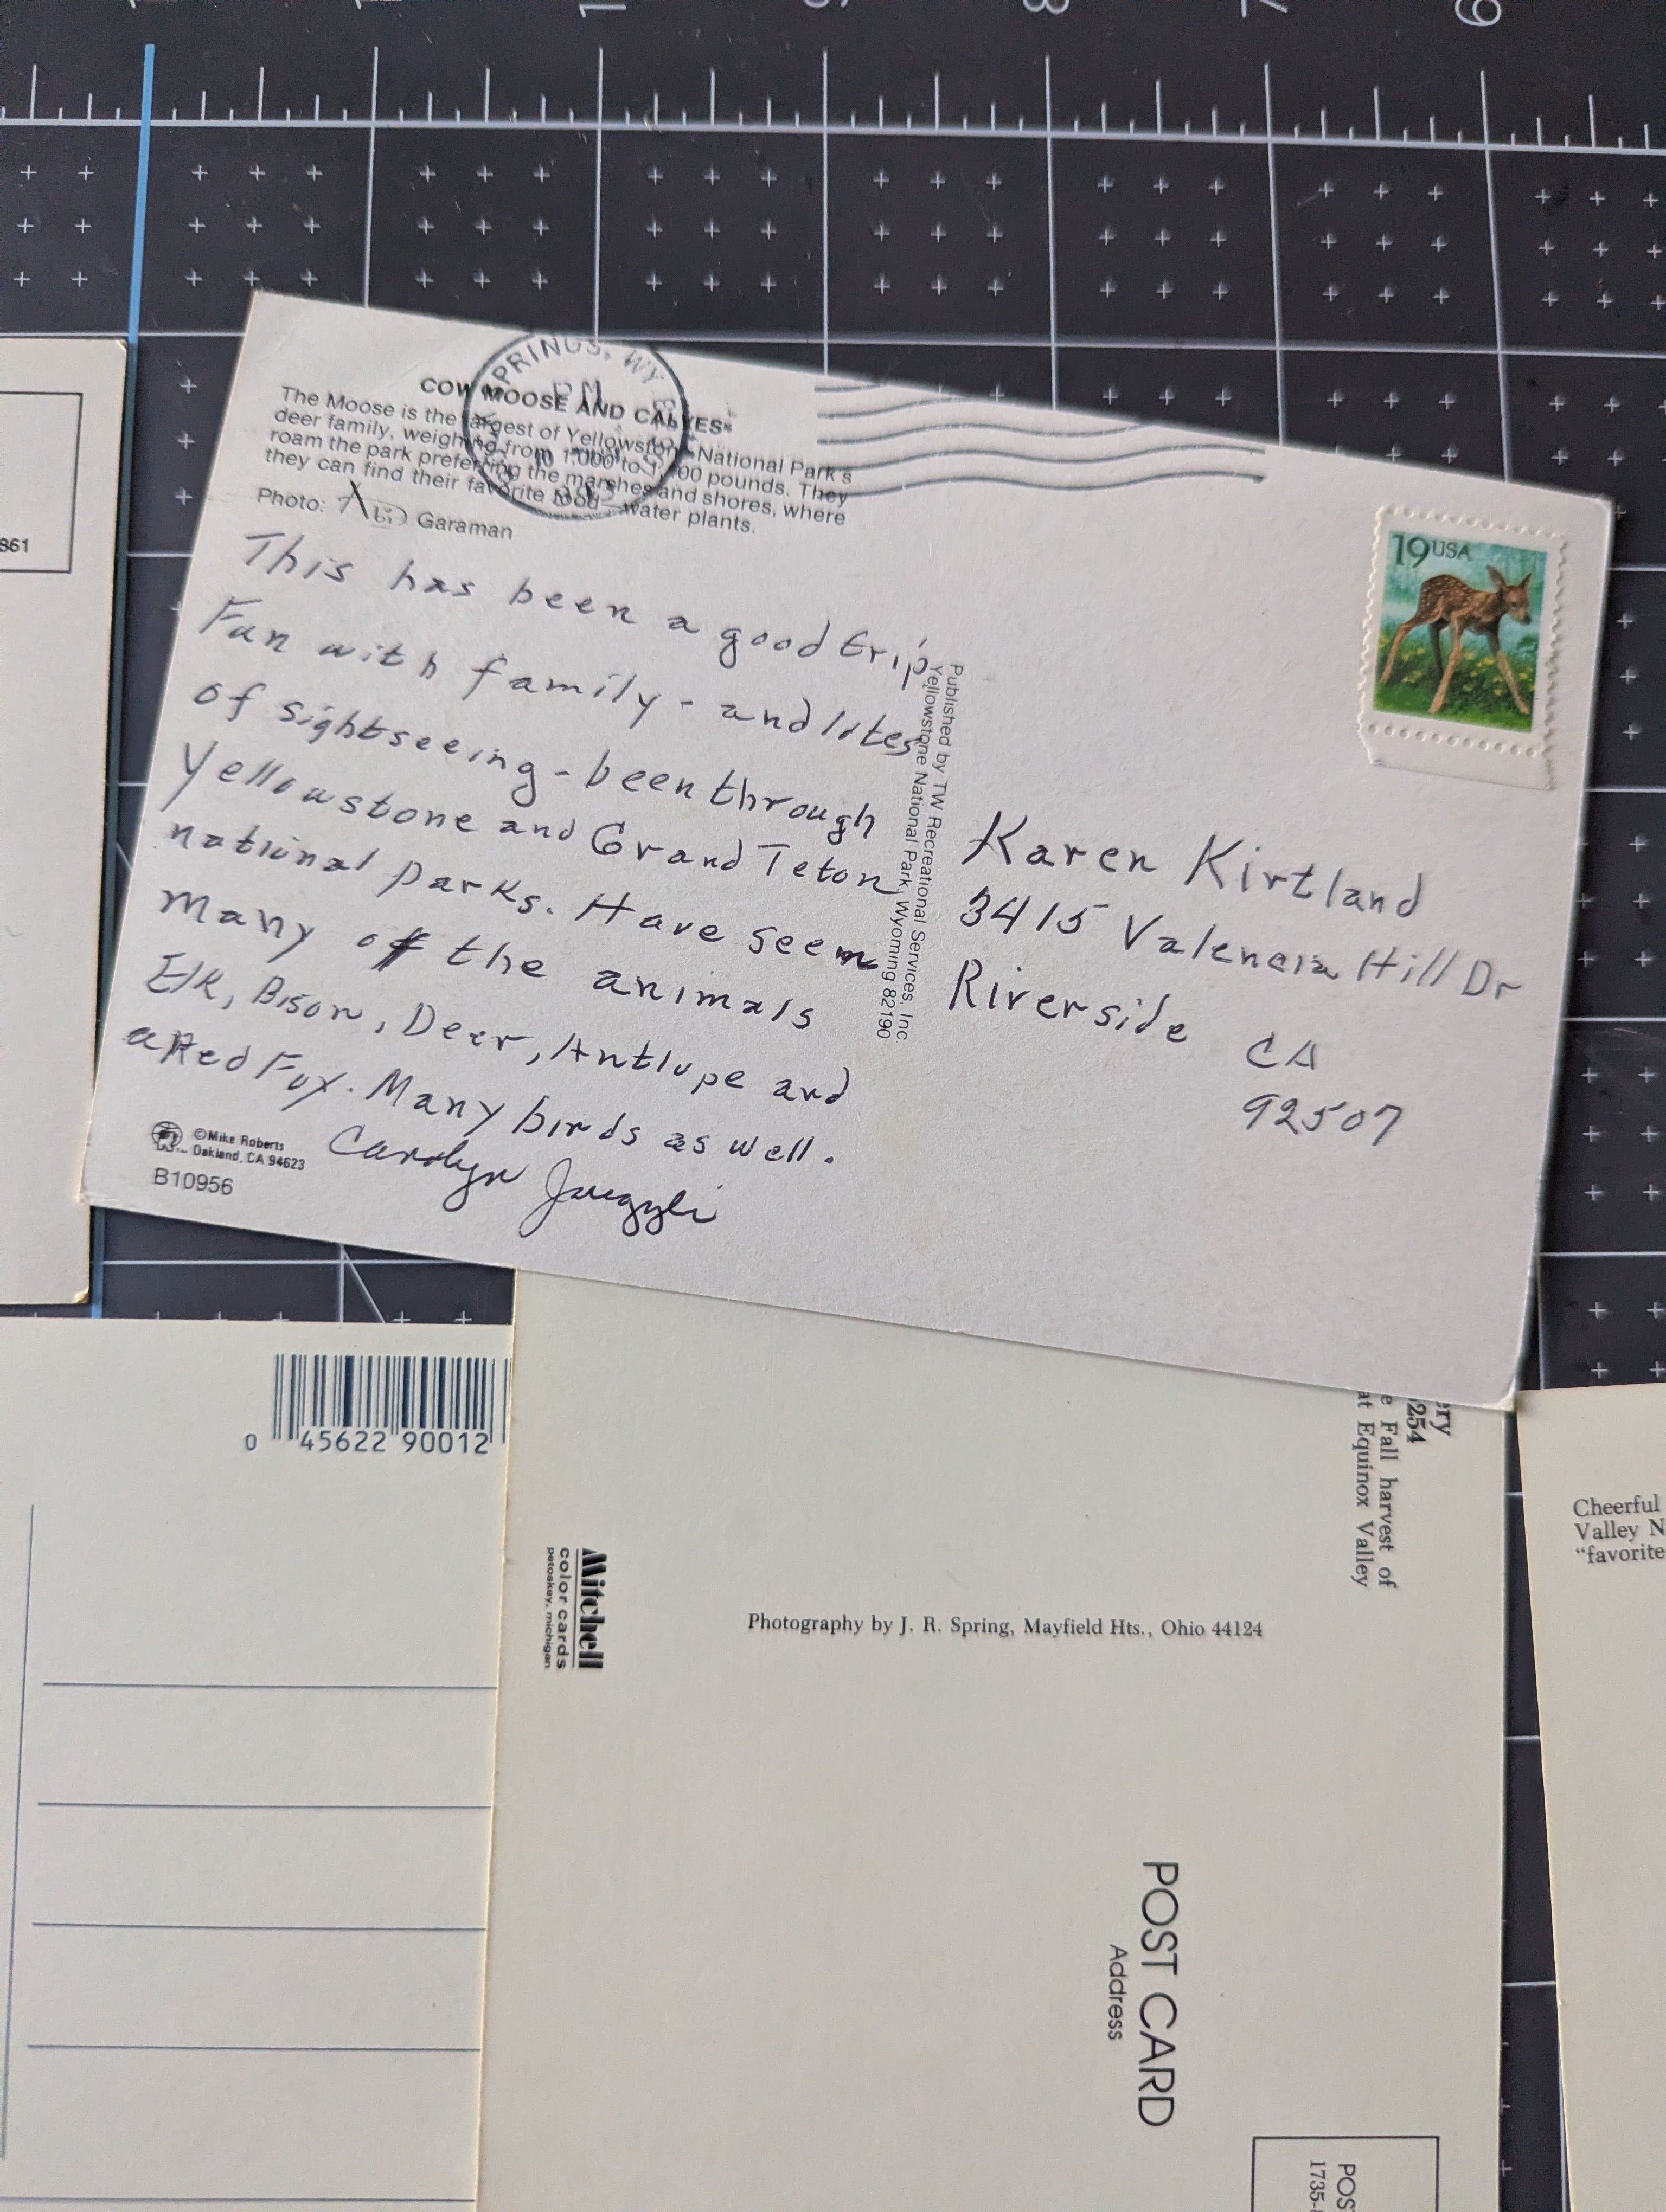 COW MOOSE AND CALVES
The Moose is the largest of Yellowstone National Park's
deer family, weighing from 1,000 to pounds. They
roam the park preferring the marshes and shores, where
they can find their favorite food—water plants.
Photo: Garaman
PRINGS, WY
PM
This has been a good trip
Fun with family - and lites
of sightseeing - been through
Yellowstone and Grand Teton
national parks. Have seem
many of the animals
Elk, Bison, Deer, Antlope and
a Red Fox. Many birds as well.
Carolyn
©Mike Roberts
Oakland, CA 94623
B10956
Published by TW Recreational Services, Inc
Yellowstone National Park, Wyoming 82190
19 USA
Karen Kirtland
3415 Valencia Hill Dr
Riverside CA
92507
861
0 45622 90012
Mitchell
color cards
petoskey, michigan
Photography by J. R. Spring, Mayfield Hts., Ohio 44124
ery
5254
e Fall harvest of
at Equinox Valley
POST CARD
Address
POS
1735-
Cheerful
Valley N
"favorite
12
11
10
9
8
7
6